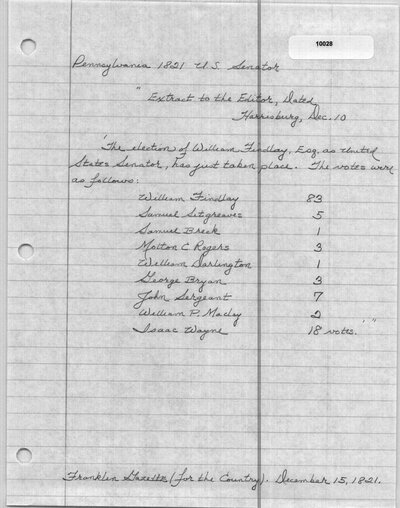 10028
Pennsylvania 1821 U.S. Senator
"Extract to the Editor, Dated
Harrisburg, Dec. 10
'The election of William Findlay, Esq. as United
States Senator, has just taken place. The votes were
as follows:
William Findlay 83
Samuel Sitgreaves 5
Samuel Breck 1
Molton C. Rogers 3
William Darlington 1
George Bryan 3
John Sergeant 7
William P. Maclay 2
Isaac Wayne 18 votes.'"
Franklin Gazette (for the Country). December 15, 1821.